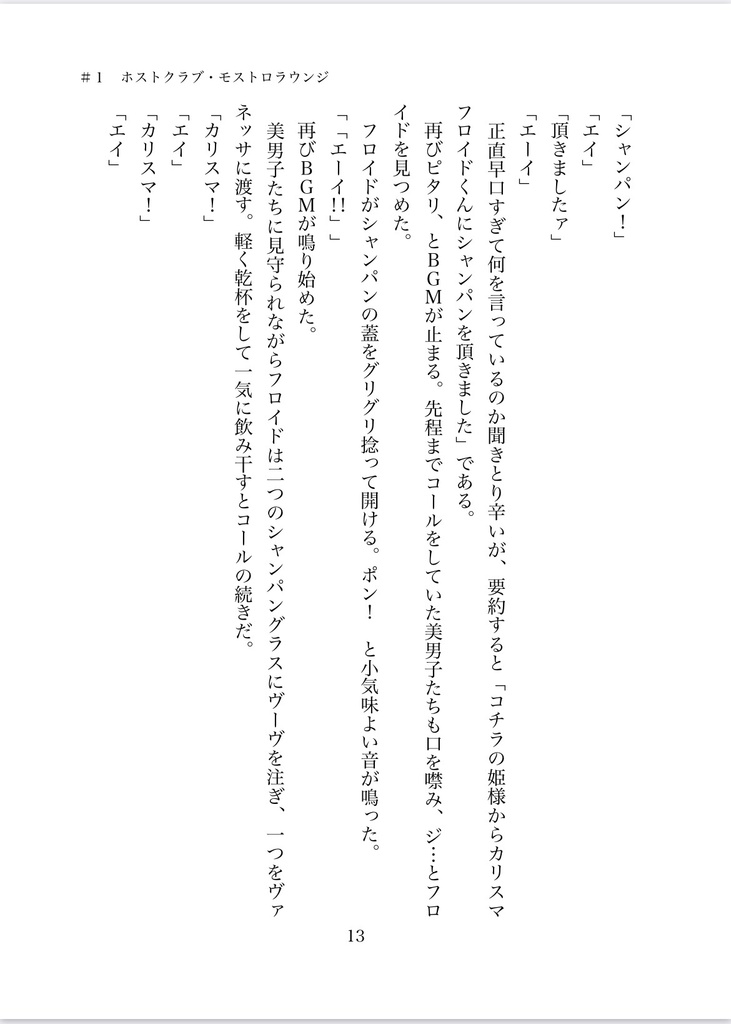 #1　ホストクラブ・モストロラウンジ
「シャンパン！」
「エイ」
「頂きましたァ」
「エーイ」
正直早口すぎて何を言っているのか聞きとり辛いが、要約すると「コチラの姫様からカリスマ
フロイドくんにシャンパンを頂きました」である。
再びピタリ、とBGMが止まる。先程までコールをしていた美男子たちも口を噤み、ジ…とフロ
イドを見つめた。
フロイドがシャンパンの蓋をグリグリ捻って開ける。ポン！　と小気味よい音が鳴った。
「「エーイ!!」」
再びBGMが鳴り始めた。
美男子たちに見守られながらフロイドは二つのシャンパングラスにヴーヴを注ぎ、一つをヴァ
ネッサに渡す。軽く乾杯をして一気に飲み干すとコールの続きだ。
「カリスマ！」
「エイ」
「カリスマ！」
「エイ」
13